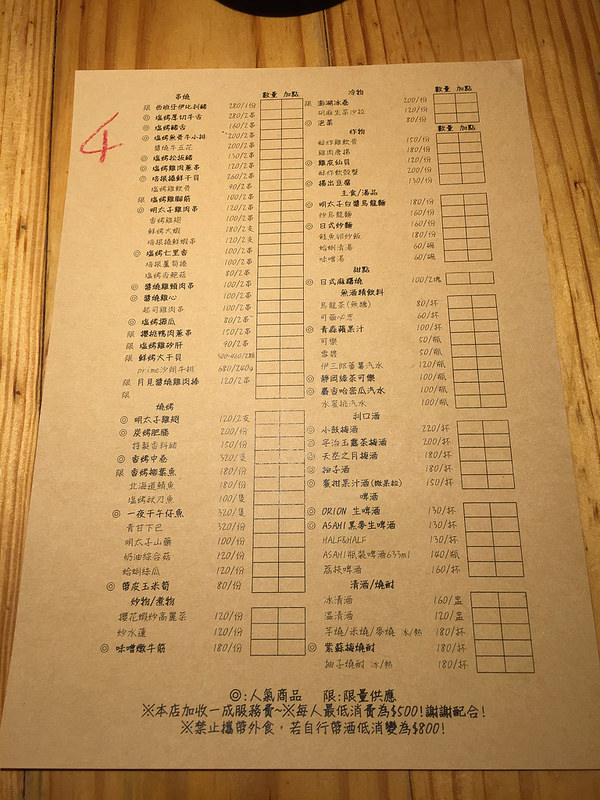 4
串燒 數量 加點
限 西班牙伊比利豬 280/1份
◎ 塩烤厚切牛舌 280/2串
◎ 塩烤豬舌 160/2串
◎ 塩烤無骨牛小排 200/2串
醬燒牛五花 200/2串
◎ 塩烤松坂豬 130/2串
◎ 塩烤雞肉蔥串 120/2串
◎ 培根捲鮮干貝 260/2串
塩烤雞軟骨 90/2串
限 塩烤雞腳筋 100/2串
◎ 明太子雞肉串 120/2串
香烤雞翅 100/2串
鮮烤大蝦 180/2支
培根捲鮮蝦串 120/2支
◎ 塩烤七里香 100/2串
培根蘆筍捲 100/2串
塩烤杏鮑菇 80/2串
◎ 醬燒雞頸肉串 100/2串
◎ 醬燒雞心 100/2串
起司雞肉串 100/2串
◎ 塩烤櫛瓜 80/2串
限 櫻桃鴨肉蔥串 150/2串
限 塩烤雞砂肝 90/2串
限 鮮烤大干貝
prime沙朗牛排 680/240g
限 月見醬燒雞肉捧 120/2串
限
燒烤
◎ 明太子雞翅 120/2支
◎ 炭烤肥腸 200/份
特製香料豬 150/份
◎ 香烤中卷 320/隻
限 香烤柳葉魚 180/份
北海道鯖魚 180/份
塩烤秋刀魚 100/隻
◎ 一夜干午仔魚 320/隻
青甘下巴 320/份
明太子山藥 100/份
奶油綜合菇 120/份
蛤蜊絲瓜 120/份
◎ 帶皮玉米筍 80/份
炒物/煮物
櫻花蝦炒高麗菜 120/份
炒水蓮 120/份
◎ 味噌燉牛筋 180/份
冷物 數量 加點
限 澎湖冰卷 200/份
胡麻生菜沙拉 120/份
◎ 泡菜 80/份
炸物 數量 加點
酥炸雞軟骨 150/份
雞肉唐揚 180/份
◎ 雞皮仙貝 120/份
酥炸軟殼蟹 200/份
◎ 揚出豆腐 130/份
主食/湯品
◎ 明太子白醬烏龍麵 180/份
炒烏龍麵 160/份
◎ 日式炒麵 160/份
鮭魚卵炒飯 180/份
蛤蜊清湯 60/碗
味噌湯 60/碗
甜點
◎ 日式麻糬燒 100/2塊
無酒精飲料
烏龍茶(無糖) 80/杯
可爾必思 60/杯
◎ 青森蘋果汁 100/杯
可樂 50/瓶
雪碧 50/瓶
伊三郎蕃薯汽水 120/瓶
◎ 靜岡綠茶可樂 100/瓶
◎ 麝香哈密瓜汽水 100/瓶
水蜜桃汽水 100/瓶
利口酒
◎ 小鼓梅酒 220/杯
◎ 宇治玉露茶梅酒 200/杯
◎ 天空之月梅酒 180/杯
◎ 柚子酒 180/杯
◎ 蜜柑果汁酒(微果粒) 150/杯
啤酒
◎ ORION 生啤酒 130/杯
◎ ASAHI黑麥生啤酒 130/杯
HALF&HALF 130/杯
ASAHI瓶裝啤酒633ml 140/瓶
荔枝啤酒 160/杯
清酒/燒酎
冰清酒 160/盅
溫清酒 120/盅
芋燒/米燒/麥燒 冰/熱 180/杯
◎ 紫蘇梅燒酎 180/杯
柚子燒酎 冰/熱 180/杯
◎:人氣商品 限:限量供應
※本店加收一成服務費~※每人最低消費為$500!謝謝配合!
※禁止攜帶外食,若自行帶酒低消變為$800!